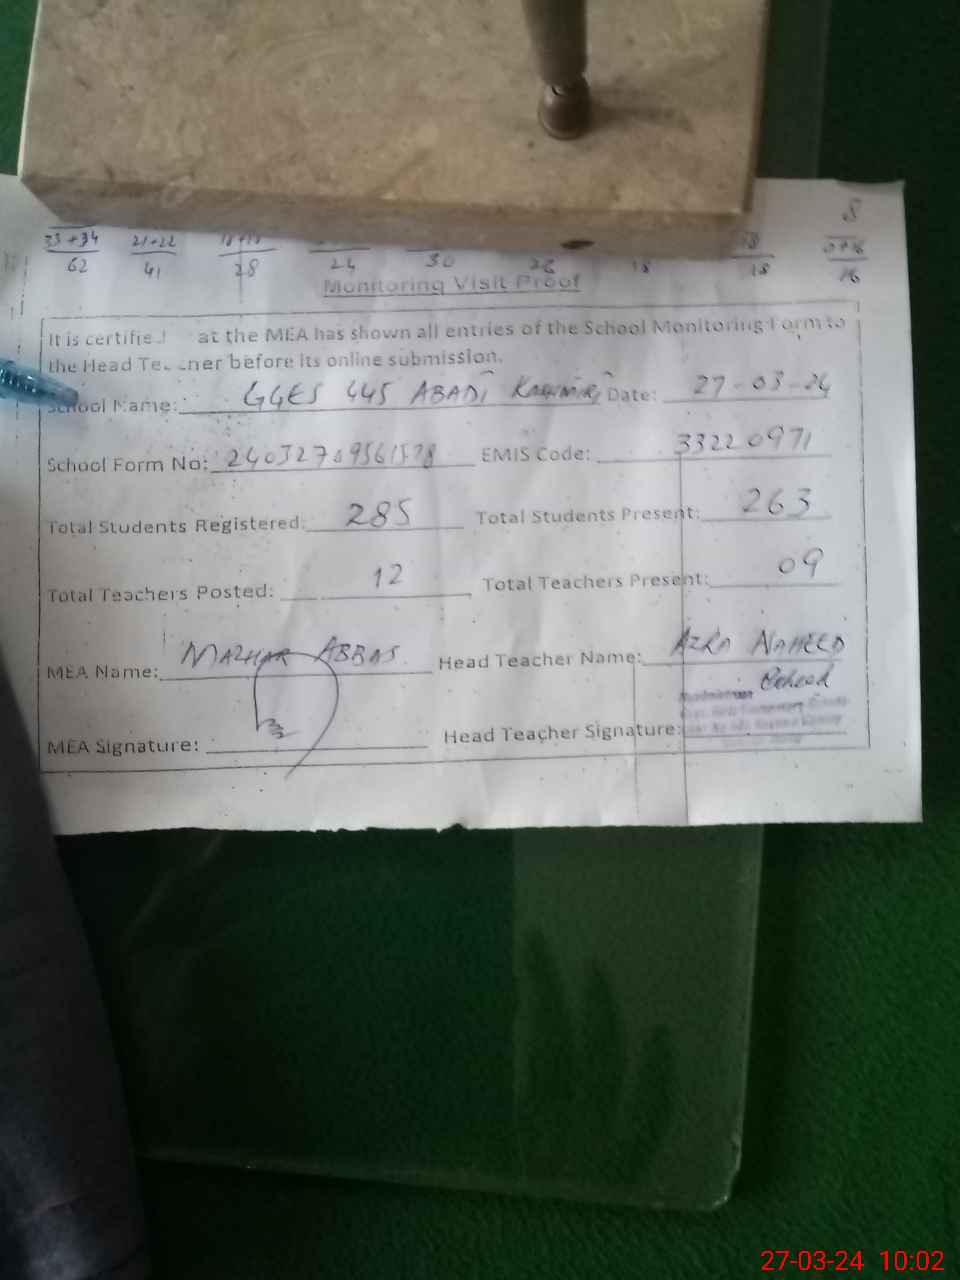 33+34 21+22 8
62 41 28 24 30 26 18 18 16
Monitoring Visit Proof
It is at the MEA has shown all entries of the School Monitoring Form to
the Head before its online submission.
School Name: GGES 445 ABADI KASHMIR Date: 27-03-24
School Form No: EMIS Code: 33220971
Total Students Registered: 285 Total Students Present: 263
Total Teachers Posted: 12 Total Teachers Present: 09
MEA Name: MAZHAR ABBAS Head Teacher Name: AZRA NAHEED
MEA Signature: Head Teacher Signature:
27-03-24 10:02